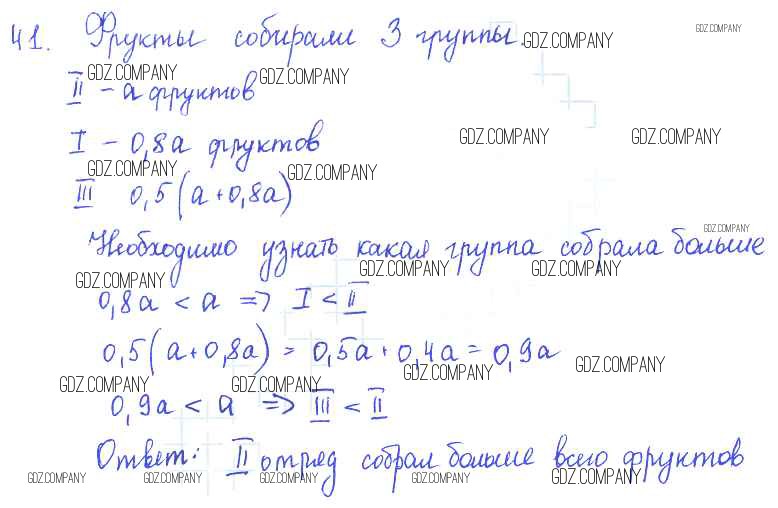 41. Фрукты собирали 3 группы.
GDZ.COMPANY GDZ.COMPANY
GDZ.COMPANY GDZ.COMPANY
II – а фруктов
I – 0,8а фруктов
GDZ.COMPANY GDZ.COMPANY
GDZ.COMPANY GDZ.COMPANY
III 0,5(а+0,8а)
GDZ.COMPANY
Необходимо узнать какая группа собрала больше
GDZ.COMPANY GDZ.COMPANY GDZ.COMPANY
0,8а < а => I < II
0,5(а+0,8а) = 0,5а + 0,4а = 0,9а
GDZ.COMPANY GDZ.COMPANY
GDZ.COMPANY GDZ.COMPANY
0,9а < а => III < II
Ответ: II отряд собрал больше всего фруктов
GDZ.COMPANY GDZ.COMPANY GDZ.COMPANY GDZ.COMPANY GDZ.COMPANY